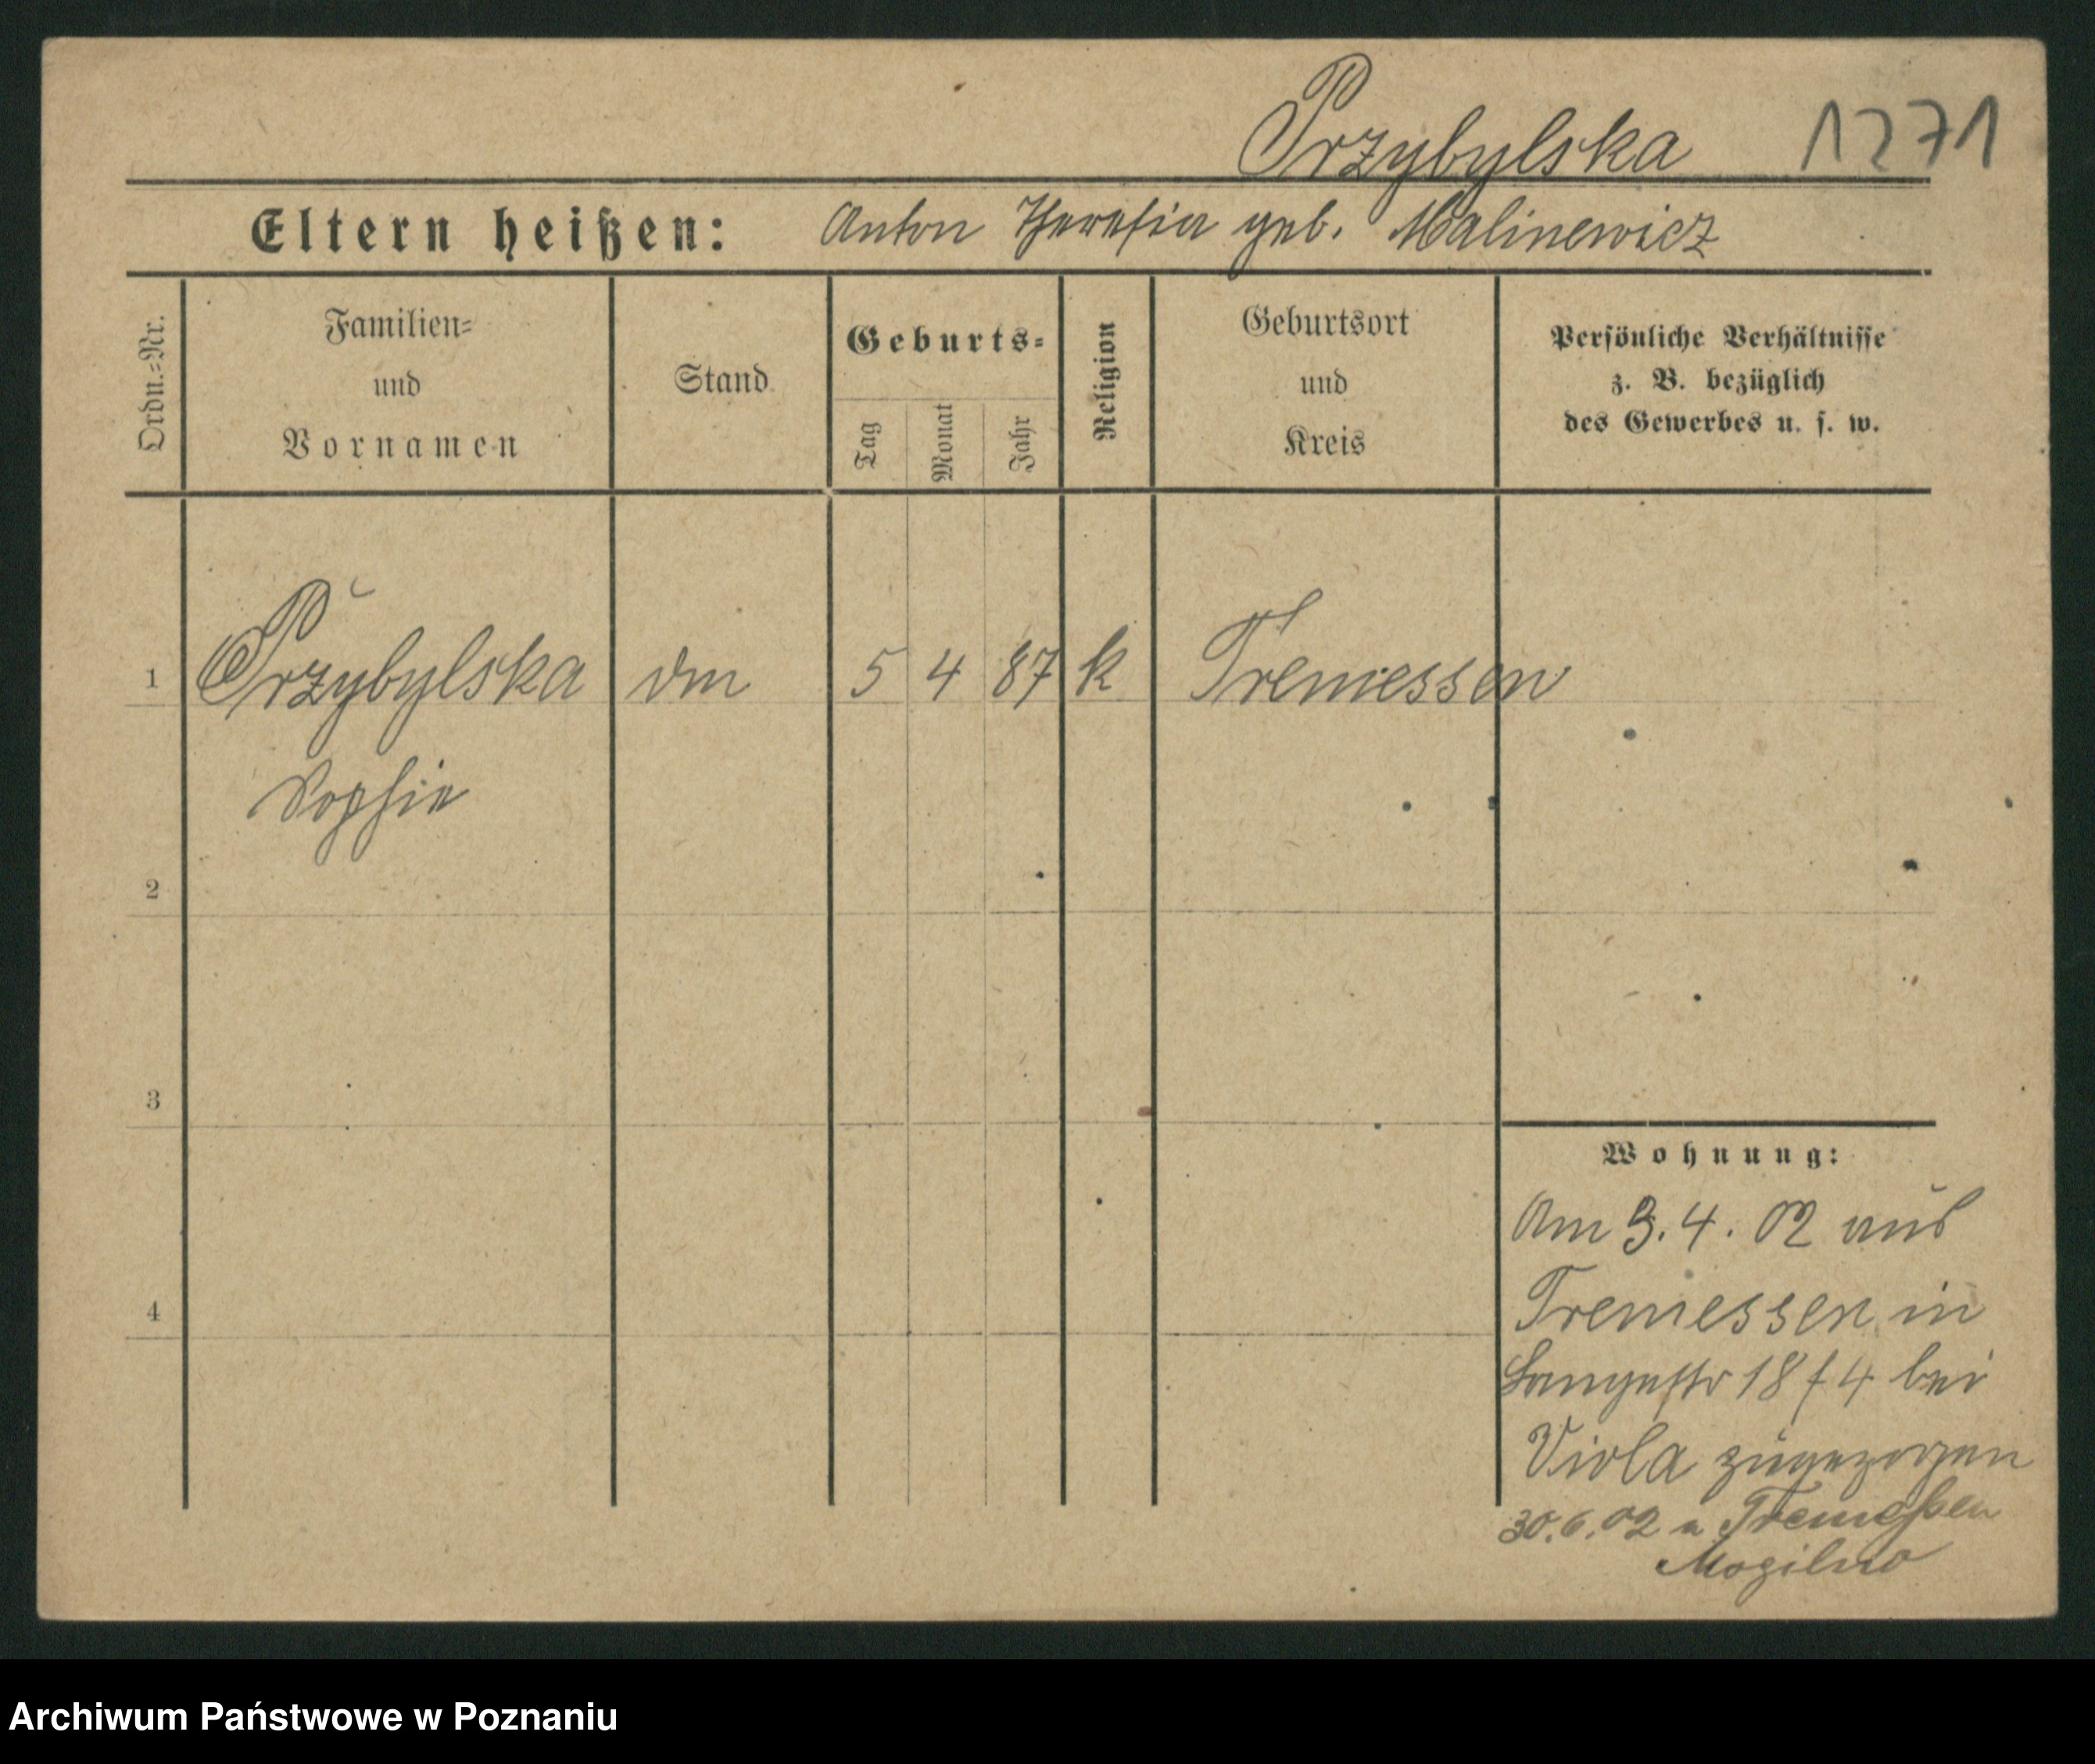 Przybylska 1271
Eltern heißen: Anton Theresia geb. Malinewicz
Ordn.-Nr.
Familien-
und
Vornamen
Stand
Geburts-
Tag
Monat
Jahr
Religion
Geburtsort
und
Kreis
Persönliche Verhältnisse
z. B. bezüglich
des Gewerbes u. s. w.
1 Przybylska dm 5 4 87 k Tremessen
Sophie
2
3
4
Wohnung:
Am 3.4.02 aus
Tremessen in
Langestr 18 f 4 bei
Viola zugezogen
30.6.02 n Tremessen
Mogilno
Archiwum Państwowe w Poznaniu